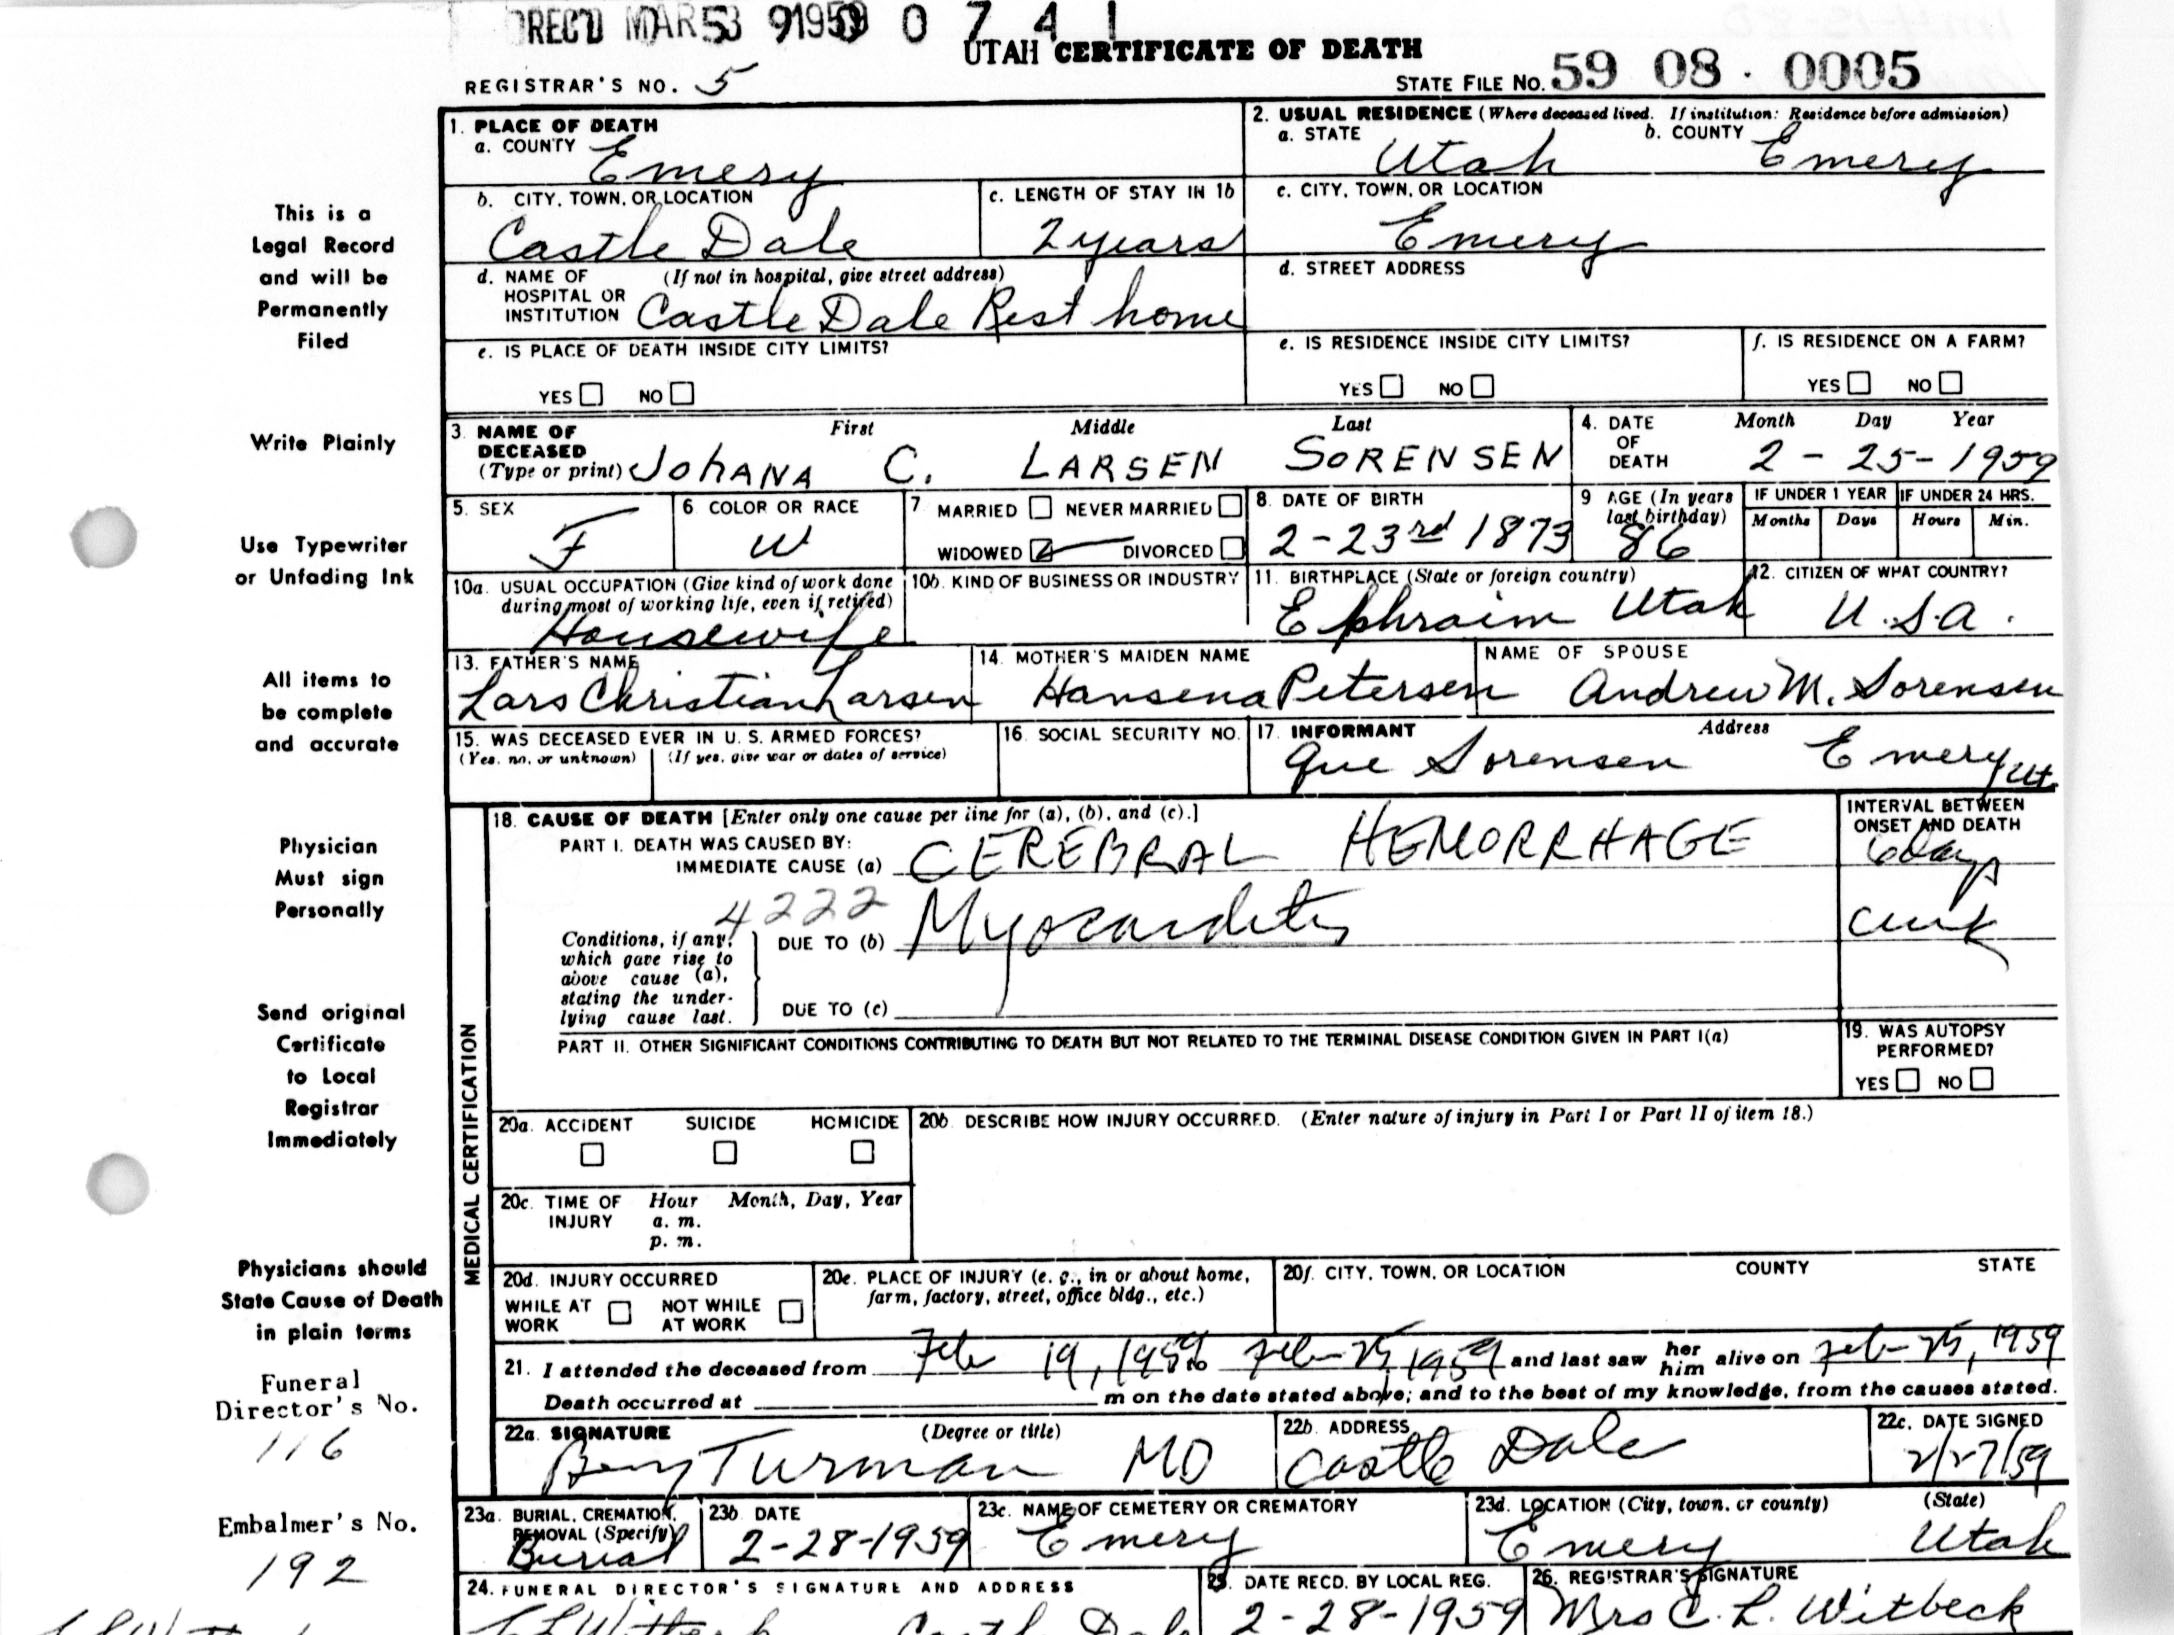 REC'D MAR 9 1959 53 0 7 4 1
UTAH CERTIFICATE OF DEATH
REGISTRAR'S NO. 5
STATE FILE NO. 59 08 · 0005
1. PLACE OF DEATH
a. COUNTY Emery
2. USUAL RESIDENCE (Where deceased lived. If institution: Residence before admission)
a. STATE Utah b. COUNTY Emery
b. CITY, TOWN, OR LOCATION Castle Dale
c. LENGTH OF STAY IN 1b 2 years
c. CITY, TOWN, OR LOCATION Emery
d. NAME OF HOSPITAL OR INSTITUTION (If not in hospital, give street address) Castle Dale Rest home
d. STREET ADDRESS
e. IS PLACE OF DEATH INSIDE CITY LIMITS?
YES NO
e. IS RESIDENCE INSIDE CITY LIMITS?
YES NO
f. IS RESIDENCE ON A FARM?
YES NO
3. NAME OF DECEASED (Type or print) First Middle Last
JOHANA C. LARSEN SORENSEN
4. DATE OF DEATH Month Day Year
2 - 25 - 1959
5. SEX F
6. COLOR OR RACE W
7 MARRIED NEVER MARRIED
WIDOWED DIVORCED
8. DATE OF BIRTH 2-23rd 1873
9 AGE (In years last birthday) 86
IF UNDER 1 YEAR Months Days
IF UNDER 24 HRS. Hours Min.
10a. USUAL OCCUPATION (Give kind of work done during most of working life, even if retired) Housewife
10b. KIND OF BUSINESS OR INDUSTRY
11. BIRTHPLACE (State or foreign country) Ephraim Utah
12. CITIZEN OF WHAT COUNTRY? U.S.A.
13. FATHER'S NAME Lars Christian Larsen
14. MOTHER'S MAIDEN NAME Hansena Petersen
NAME OF SPOUSE Andrew M. Sorensen
15. WAS DECEASED EVER IN U. S. ARMED FORCES?
(Yes, no, or unknown) (If yes, give war or dates of service)
16. SOCIAL SECURITY NO.
17. INFORMANT Address
Gue Sorensen Emery Ut.
MEDICAL CERTIFICATION
18. CAUSE OF DEATH [Enter only one cause per line for (a), (b), and (c).]
INTERVAL BETWEEN ONSET AND DEATH
PART I. DEATH WAS CAUSED BY:
IMMEDIATE CAUSE (a) CEREBRAL HEMORRHAGE 6 days
4222
Conditions, if any, which gave rise to above cause (a), stating the underlying cause last.
DUE TO (b) Myocarditis
DUE TO (c)
PART II. OTHER SIGNIFICANT CONDITIONS CONTRIBUTING TO DEATH BUT NOT RELATED TO THE TERMINAL DISEASE CONDITION GIVEN IN PART I(a)
19. WAS AUTOPSY PERFORMED?
YES NO
20a. ACCIDENT SUICIDE HOMICIDE
20b. DESCRIBE HOW INJURY OCCURRED. (Enter nature of injury in Part I or Part II of item 18.)
20c. TIME OF INJURY Hour Month, Day, Year
a. m.
p. m.
20d. INJURY OCCURRED
WHILE AT WORK NOT WHILE AT WORK
20e. PLACE OF INJURY (e. g., in or about home, farm, factory, street, office bldg., etc.)
20f. CITY, TOWN, OR LOCATION COUNTY STATE
21. I attended the deceased from Feb 19, 1959 to Feb-25, 1959 and last saw her him alive on Feb-25, 1959
Death occurred at m on the date stated above; and to the best of my knowledge, from the causes stated.
22a. SIGNATURE (Degree or title)
Turman MD
22b. ADDRESS Castle Dale
22c. DATE SIGNED 2/27/59
23a. BURIAL, CREMATION, REMOVAL (Specify) Burial
23b. DATE 2-28-1959
23c. NAME OF CEMETERY OR CREMATORY Emery
23d. LOCATION (City, town, or county) (State)
Emery Utah
24. FUNERAL DIRECTOR'S SIGNATURE AND ADDRESS
Castle Dale
25. DATE RECD. BY LOCAL REG. 2-28-1959
26. REGISTRAR'S SIGNATURE Mrs C. L. Witbeck
This is a
Legal Record
and will be
Permanently
Filed
Write Plainly
Use Typewriter
or Unfading Ink
All items to
be complete
and accurate
Physician
Must sign
Personally
Send original
Certificate
to Local
Registrar
Immediately
Physicians should
State Cause of Death
in plain terms
Funeral
Director's No.
116
Embalmer's No.
192